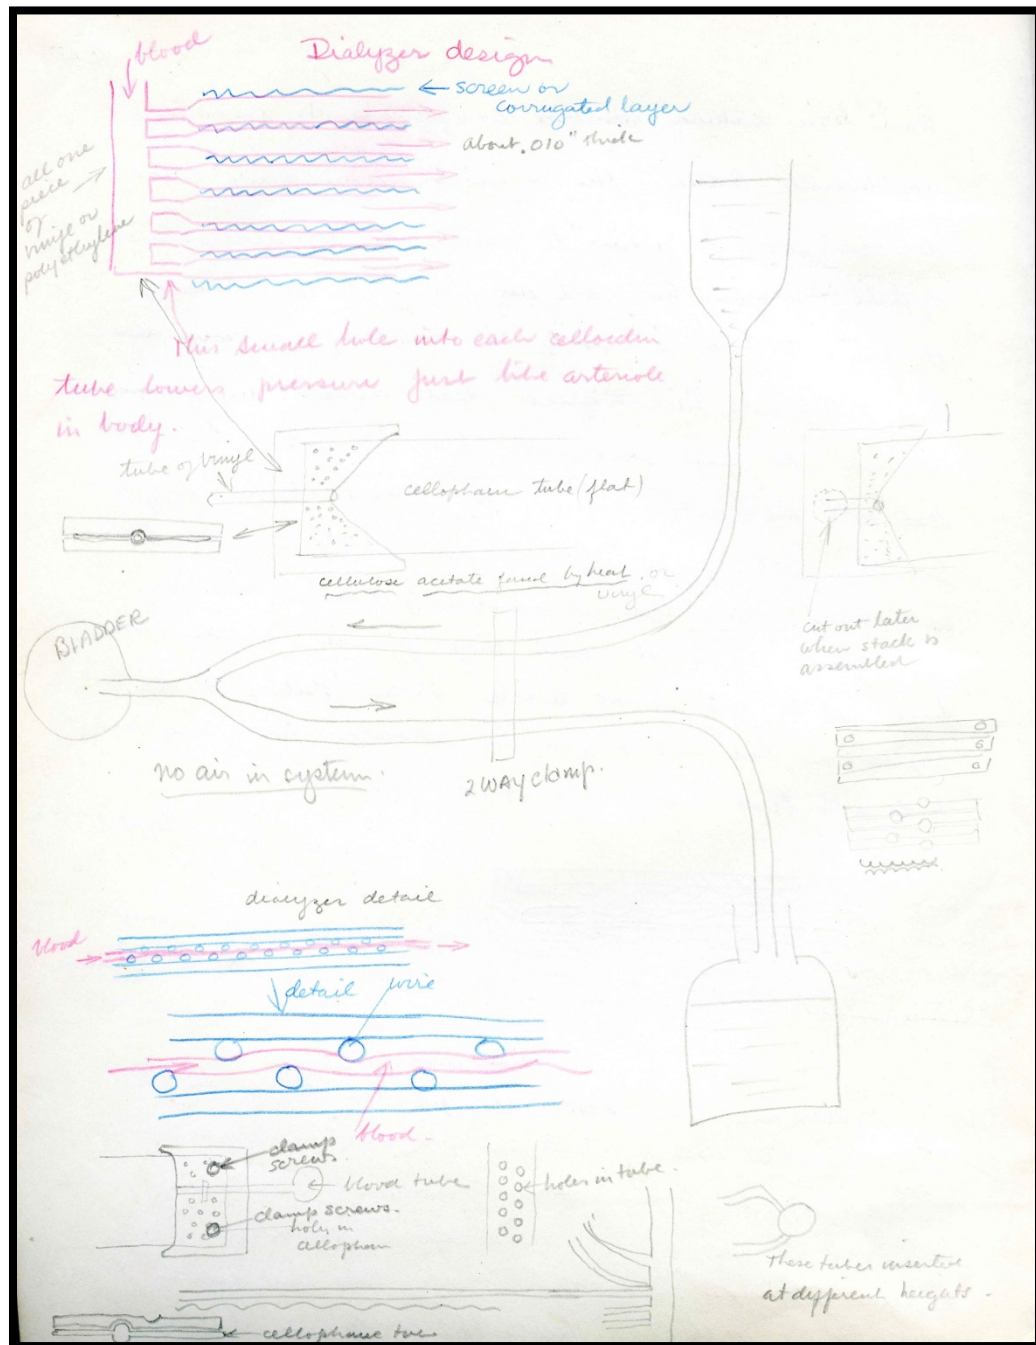 blood
Dialyzer design
← screen or
corrugated layer
about .010" thick
all one
piece
of
vinyl or
polyethylene
This small hole into each celloidin
tube lowers pressure just like arteriole
in body.
tube of vinyl
cellophane tube (flat)
cellulose acetate fused by heat or
vinyl
cut out later
when stack is
assembled
BLADDER
no air in system.
2 WAY clamp.
dialyzer detail
blood
detail
wire
blood
clamp
screws.
blood tube
holes in tube.
clamp screws.
holes in
cellophane
These tubes
at different heights.
cellophane